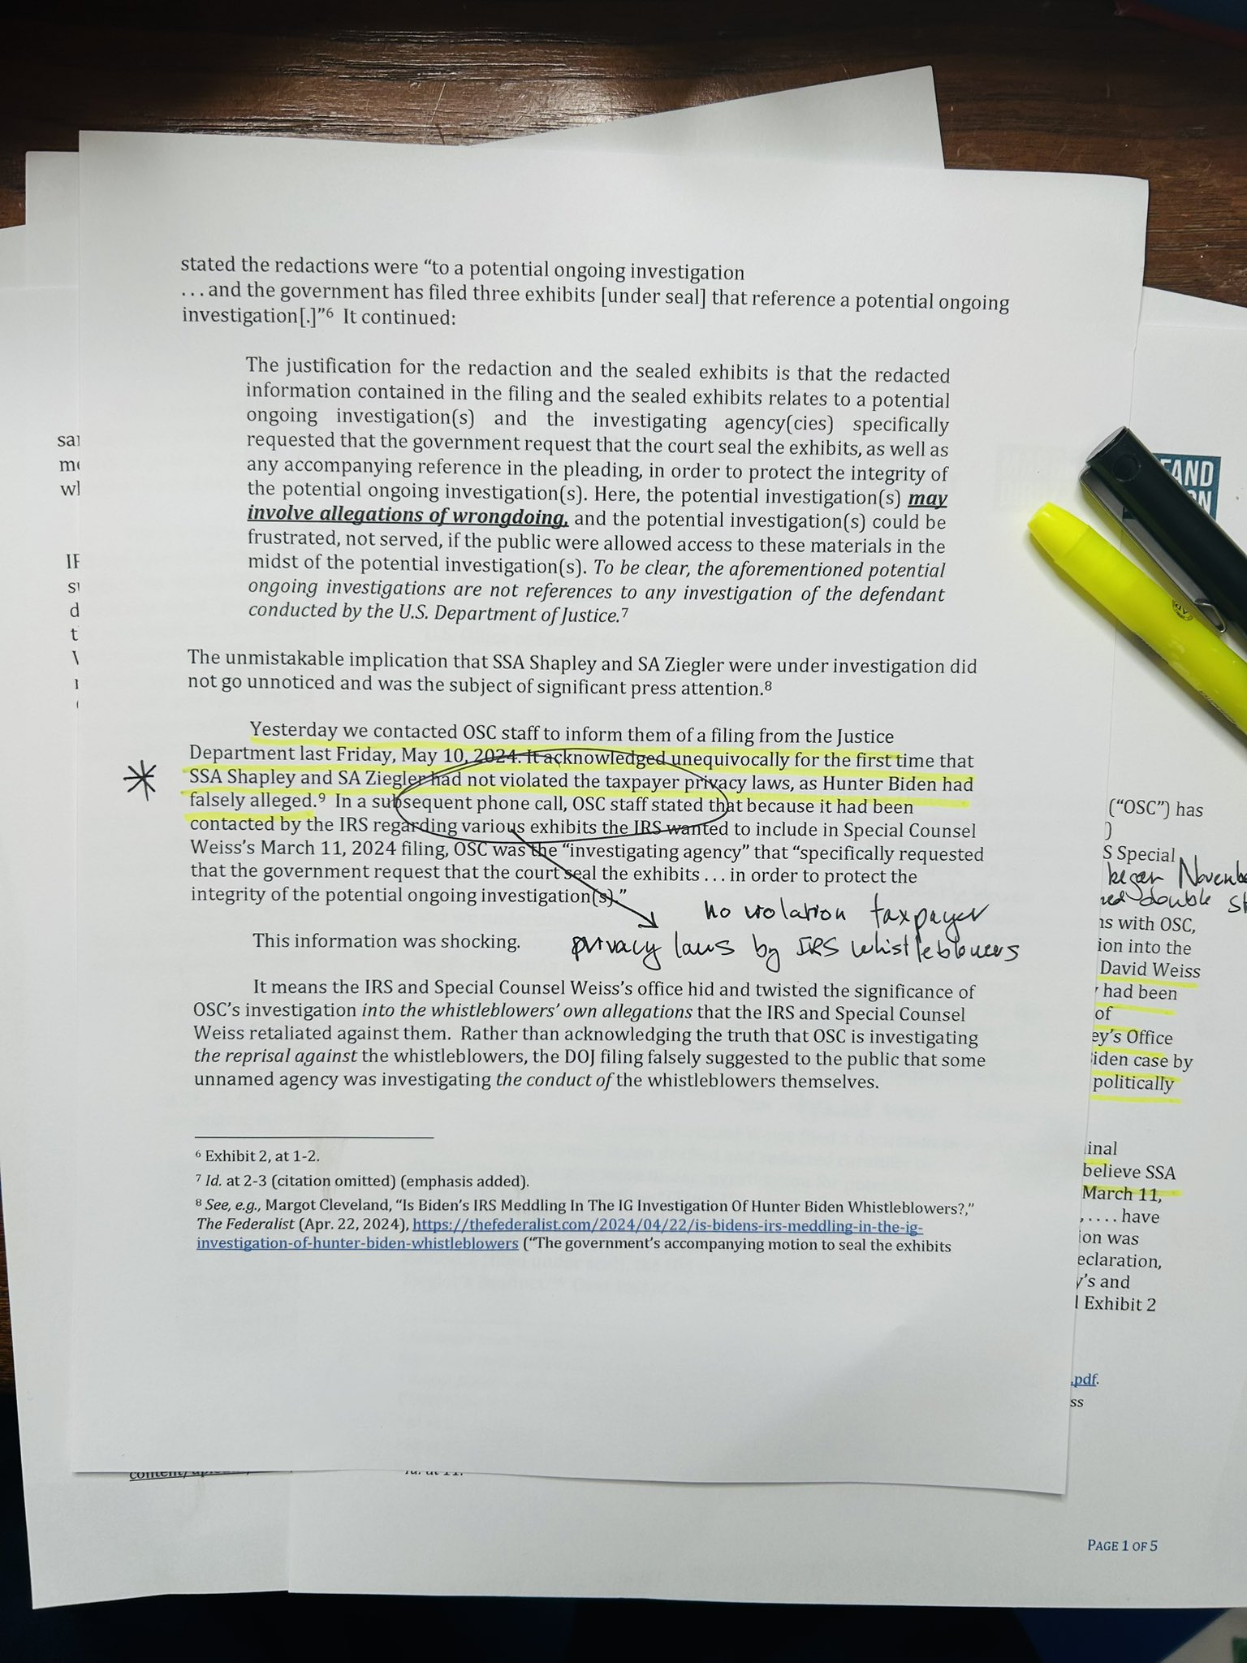 stated the redactions were “to a potential ongoing investigation
. . . and the government has filed three exhibits [under seal] that reference a potential ongoing
investigation[.]”6 It continued:
The justification for the redaction and the sealed exhibits is that the redacted
information contained in the filing and the sealed exhibits relates to a potential
ongoing investigation(s) and the investigating agency(cies) specifically
requested that the government request that the court seal the exhibits, as well as
any accompanying reference in the pleading, in order to protect the integrity of
the potential ongoing investigation(s). Here, the potential investigation(s) may
involve allegations of wrongdoing, and the potential investigation(s) could be
frustrated, not served, if the public were allowed access to these materials in the
midst of the potential investigation(s). To be clear, the aforementioned potential
ongoing investigations are not references to any investigation of the defendant
conducted by the U.S. Department of Justice.7
The unmistakable implication that SSA Shapley and SA Ziegler were under investigation did
not go unnoticed and was the subject of significant press attention.8
Yesterday we contacted OSC staff to inform them of a filing from the Justice
Department last Friday, May 10, 2024. It acknowledged unequivocally for the first time that
SSA Shapley and SA Ziegler had not violated the taxpayer privacy laws, as Hunter Biden had
falsely alleged.9 In a subsequent phone call, OSC staff stated that because it had been
contacted by the IRS regarding various exhibits the IRS wanted to include in Special Counsel
Weiss’s March 11, 2024 filing, OSC was the “investigating agency” that “specifically requested
that the government request that the court seal the exhibits . . . in order to protect the
integrity of the potential ongoing investigation(s).”
no violation taxpayer
privacy laws by IRS whistleblowers
This information was shocking.
It means the IRS and Special Counsel Weiss’s office hid and twisted the significance of
OSC’s investigation into the whistleblowers’ own allegations that the IRS and Special Counsel
Weiss retaliated against them. Rather than acknowledging the truth that OSC is investigating
the reprisal against the whistleblowers, the DOJ filing falsely suggested to the public that some
unnamed agency was investigating the conduct of the whistleblowers themselves.
6 Exhibit 2, at 1-2.
7 Id. at 2-3 (citation omitted) (emphasis added).
8 See, e.g., Margot Cleveland, “Is Biden’s IRS Meddling In The IG Investigation Of Hunter Biden Whistleblowers?,”
The Federalist (Apr. 22, 2024), https://thefederalist.com/2024/04/22/is-bidens-irs-meddling-in-the-ig-
investigation-of-hunter-biden-whistleblowers (“The government’s accompanying motion to seal the exhibits
(“OSC”) has
)
S Special
began
double
ns with OSC,
ion into the
David Weiss
had been
of
ey’s Office
iden case by
politically
inal
believe SSA
March 11,
. . . . have
ion was
eclaration,
y’s and
Exhibit 2
.pdf.
ss
PAGE 1 OF 5